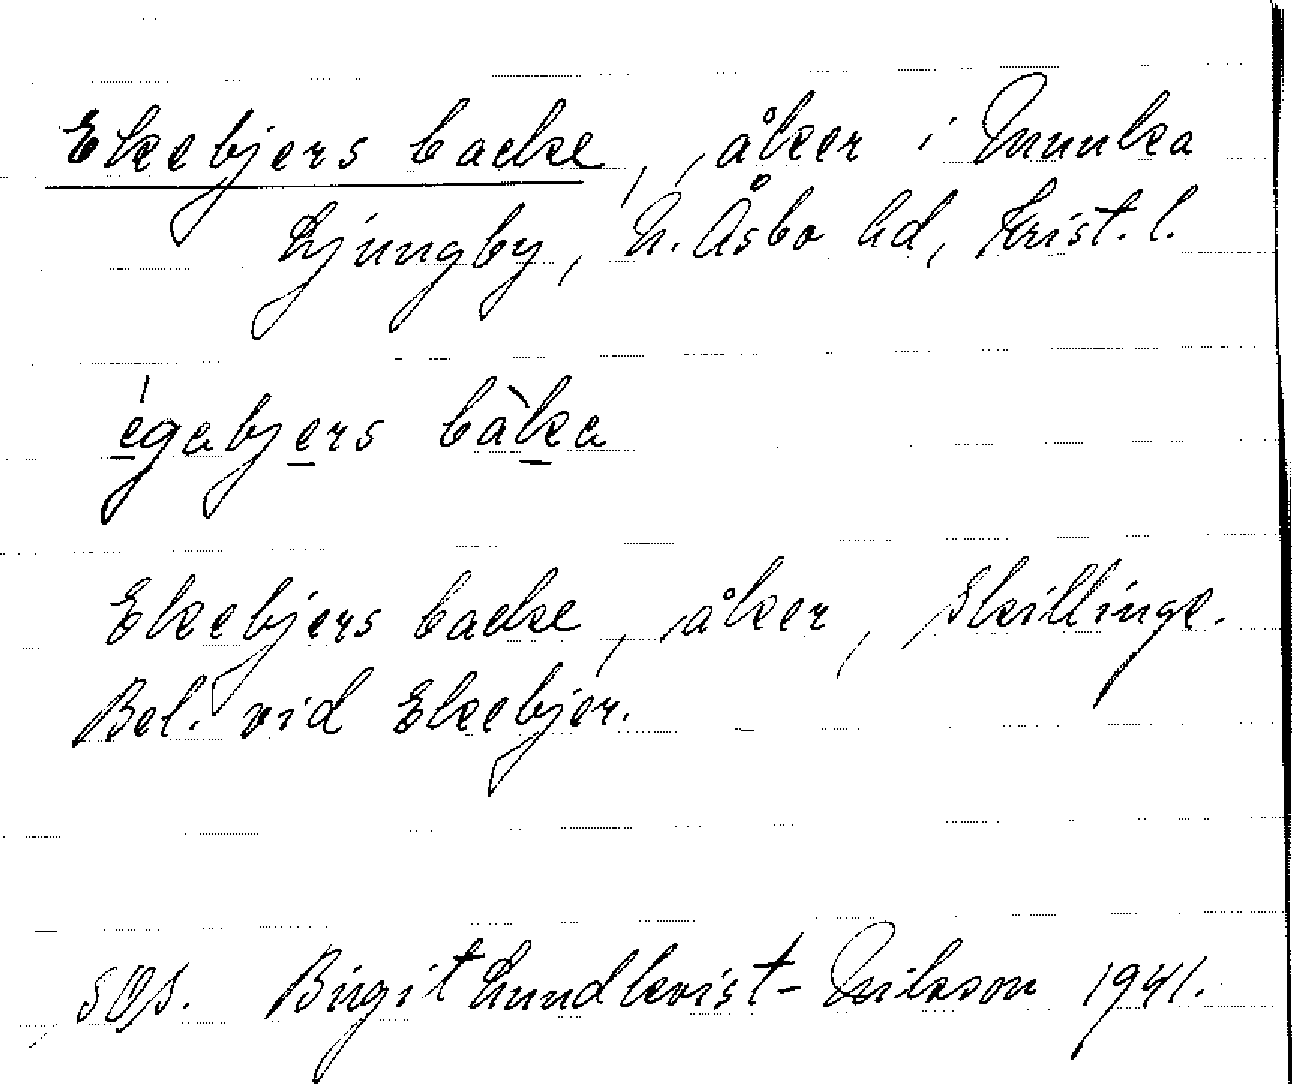 Ekebjers backe, åker i Munka
Ljungby, N. Åsbo hd, Krist. l.
égabjers bàka
Ekebjers backe, åker, Skillinge.
Bel. vid Ekebjer.
SOS. Birgit Lundkvist-Nilsson 1941.